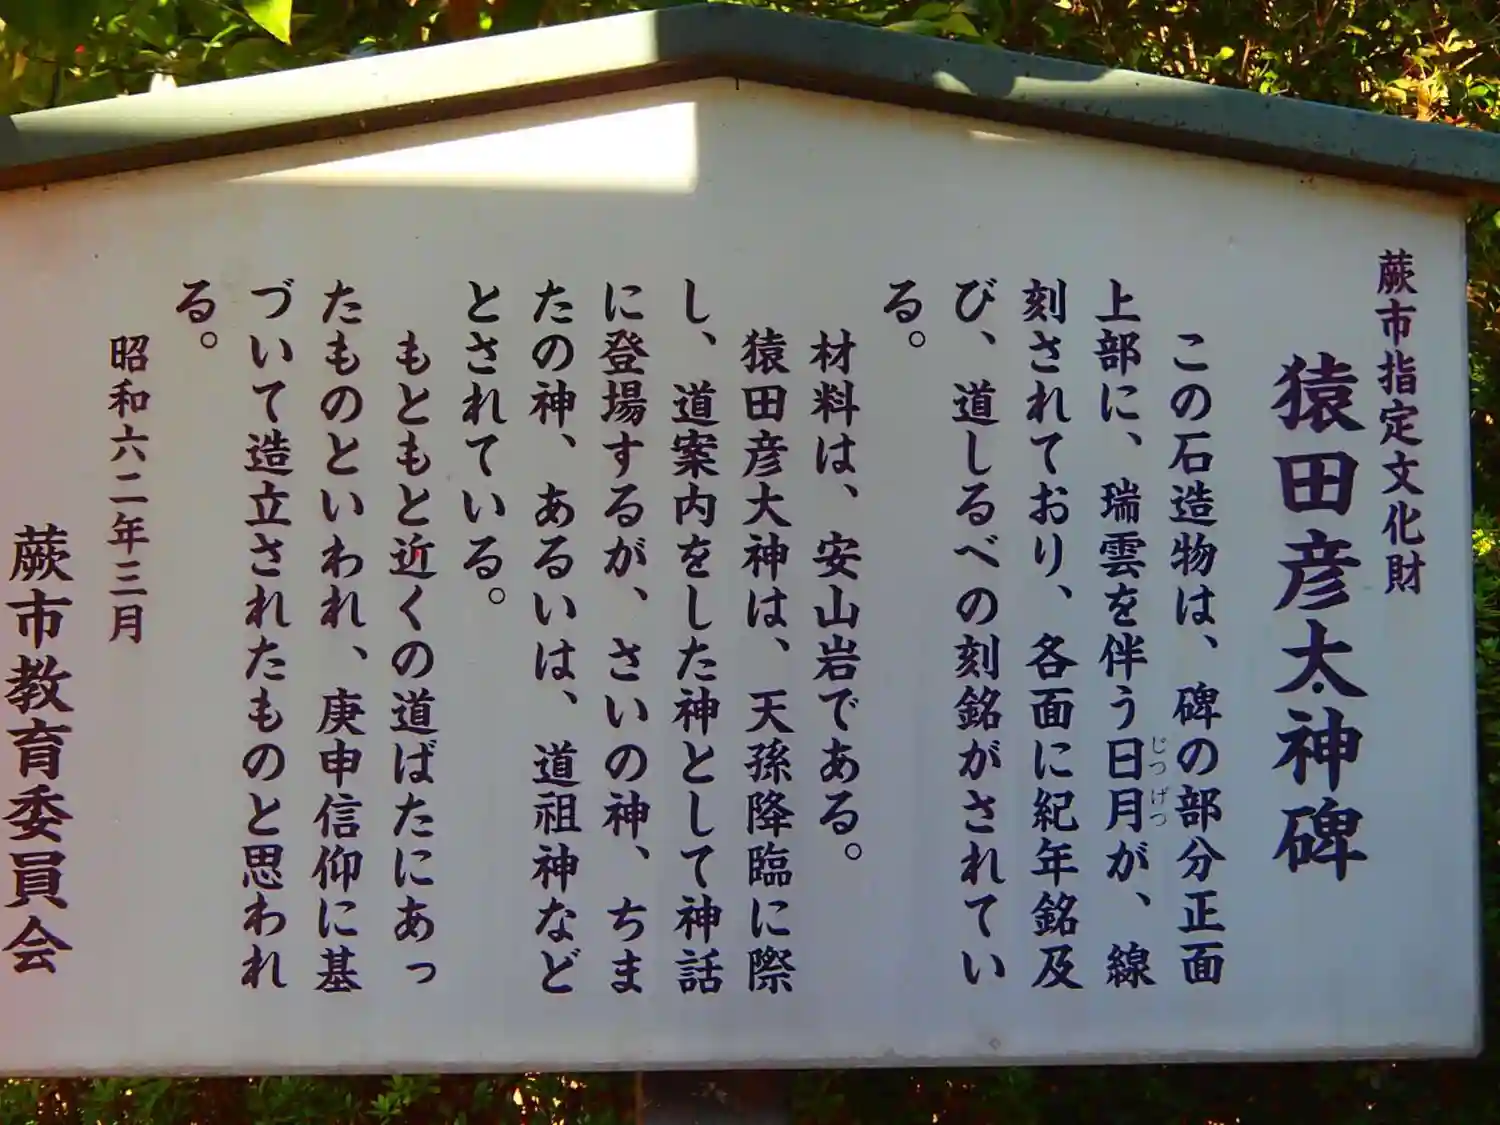 蕨市指定文化財
猿田彦大神碑
この石造物は、碑の部分正面
上部に、瑞雲を伴う日月が、線
じつげつ
刻されており、各面に紀年銘及
び、道しるべの刻銘がされてい
る。
材料は、安山岩である。
猿田彦大神は、天孫降臨に際
し、道案内をした神として神話
に登場するが、さいの神、ちま
たの神、あるいは、道祖神など
とされている。
もともと近くの道ばたにあっ
たものといわれ、庚申信仰に基
づいて造立されたものと思われ
る。
昭和六二年三月
蕨市教育委員会